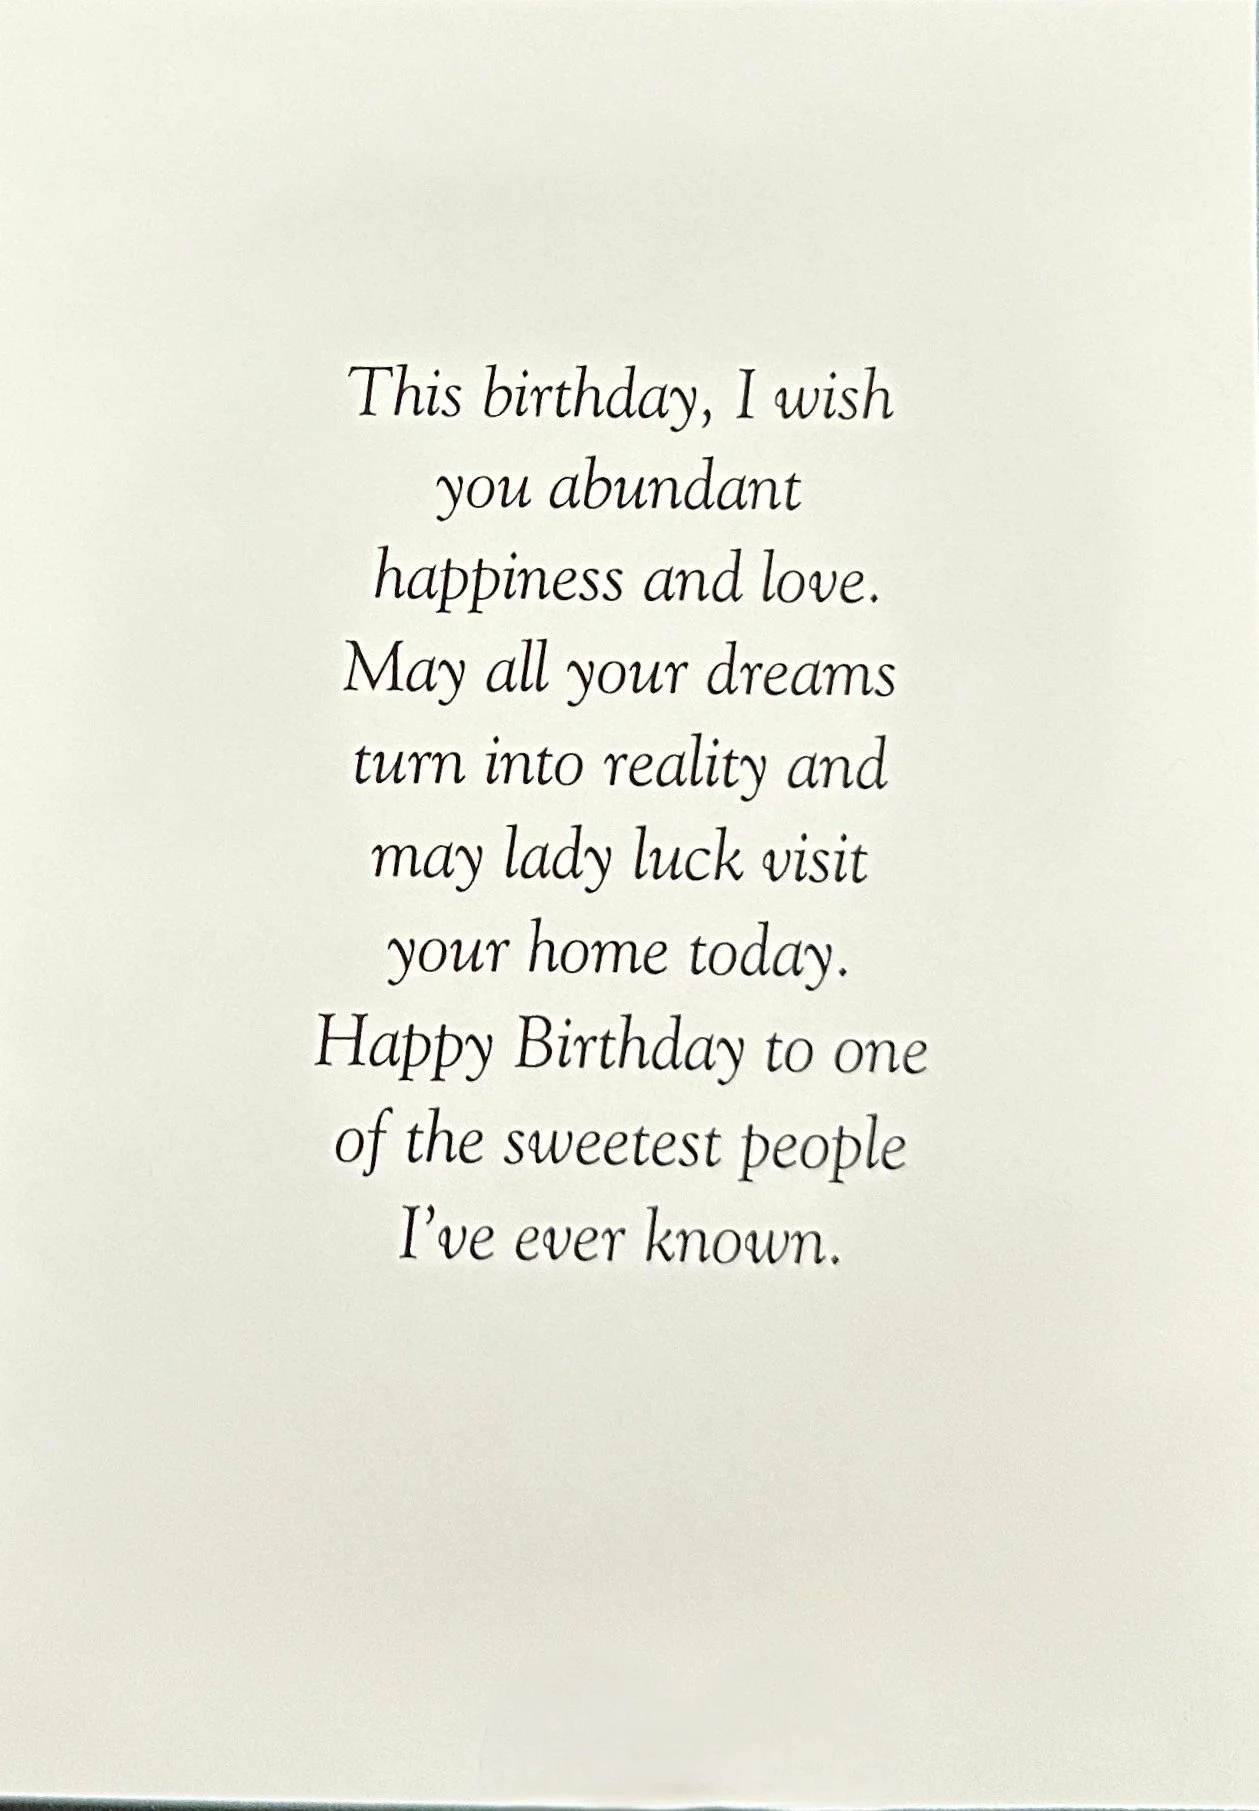 This birthday, I wish
you abundant
happiness and love.
May all your dreams
turn into reality and
may lady luck visit
your home today.
Happy Birthday to one
of the sweetest people
I've ever known.